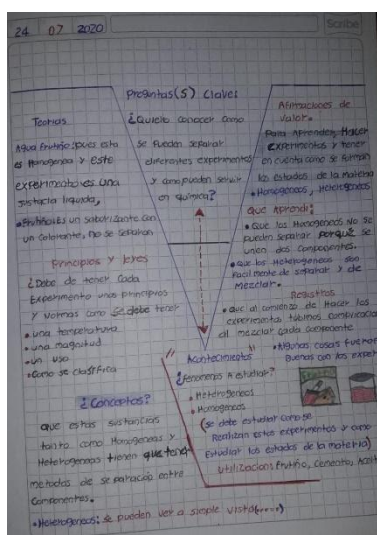 24 07 2020
Scribe
Preguntas(s) Claves
¿Quiero conocer como
se pueden separar
diferentes experimentos
y como pueden servir
en química?
Teorias
Agua frutiño: pues esta
es Homogenea y este
experimento es una
sustacia liquida,
•Frutiño: es un saborizante con
un colorante, no se separan
Principios y leyes
¿Debe de tener cada
Experimento unos principios
y normas como se debe tener
•una temperatura
•una magnitud
•un uso
•Como se clasifica
¿Conceptos?
que estas sustancias
tanto como Homogeneas y
Heterogeneos tienen que tener
metodos de separacion entre
componentes.
•Heterogeneos: se pueden ver a simple vista
Afirmaciones de
valor.
Para Aprender, Hacer
experimentos y tener
en cuenta como se forman
los estados de la materia
•Homogeneos, Heterogeneos
Que Aprendi:
•Que los Homogeneos no se
pueden separar porque se
unen dos componentes.
•que los Heterogeneos son
Facilmente de separar y de
mezclar.
Registros
•que al comienzo de Hacer los
experimentos tubimos
al mezclar cada componente
•Algunas cosas fueron
Buenas con los exper
Acontecimientos
¿fenomenos A estudiar?
•Heterogeneos
•Homogeneos
(se debe estudiar como se
Realizan estos experimentos y como
Estudiar los estados de la materia)
utilizacions frutiño, cemento, Aceit